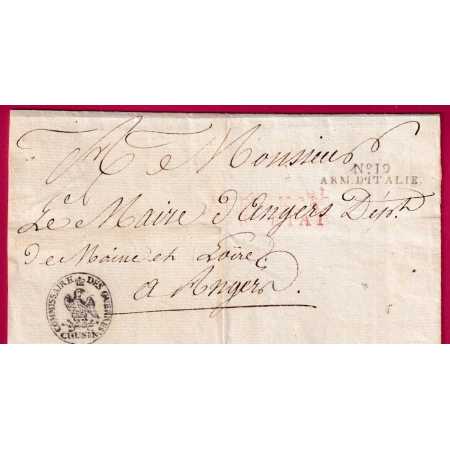 A Monsieur
No 19
ARM. D'ITALIE.
Le Maire d'Angers Dépt
de Maine et Loire
a Angers.
COMMISSAIRE DES GUERRES
COUSIN